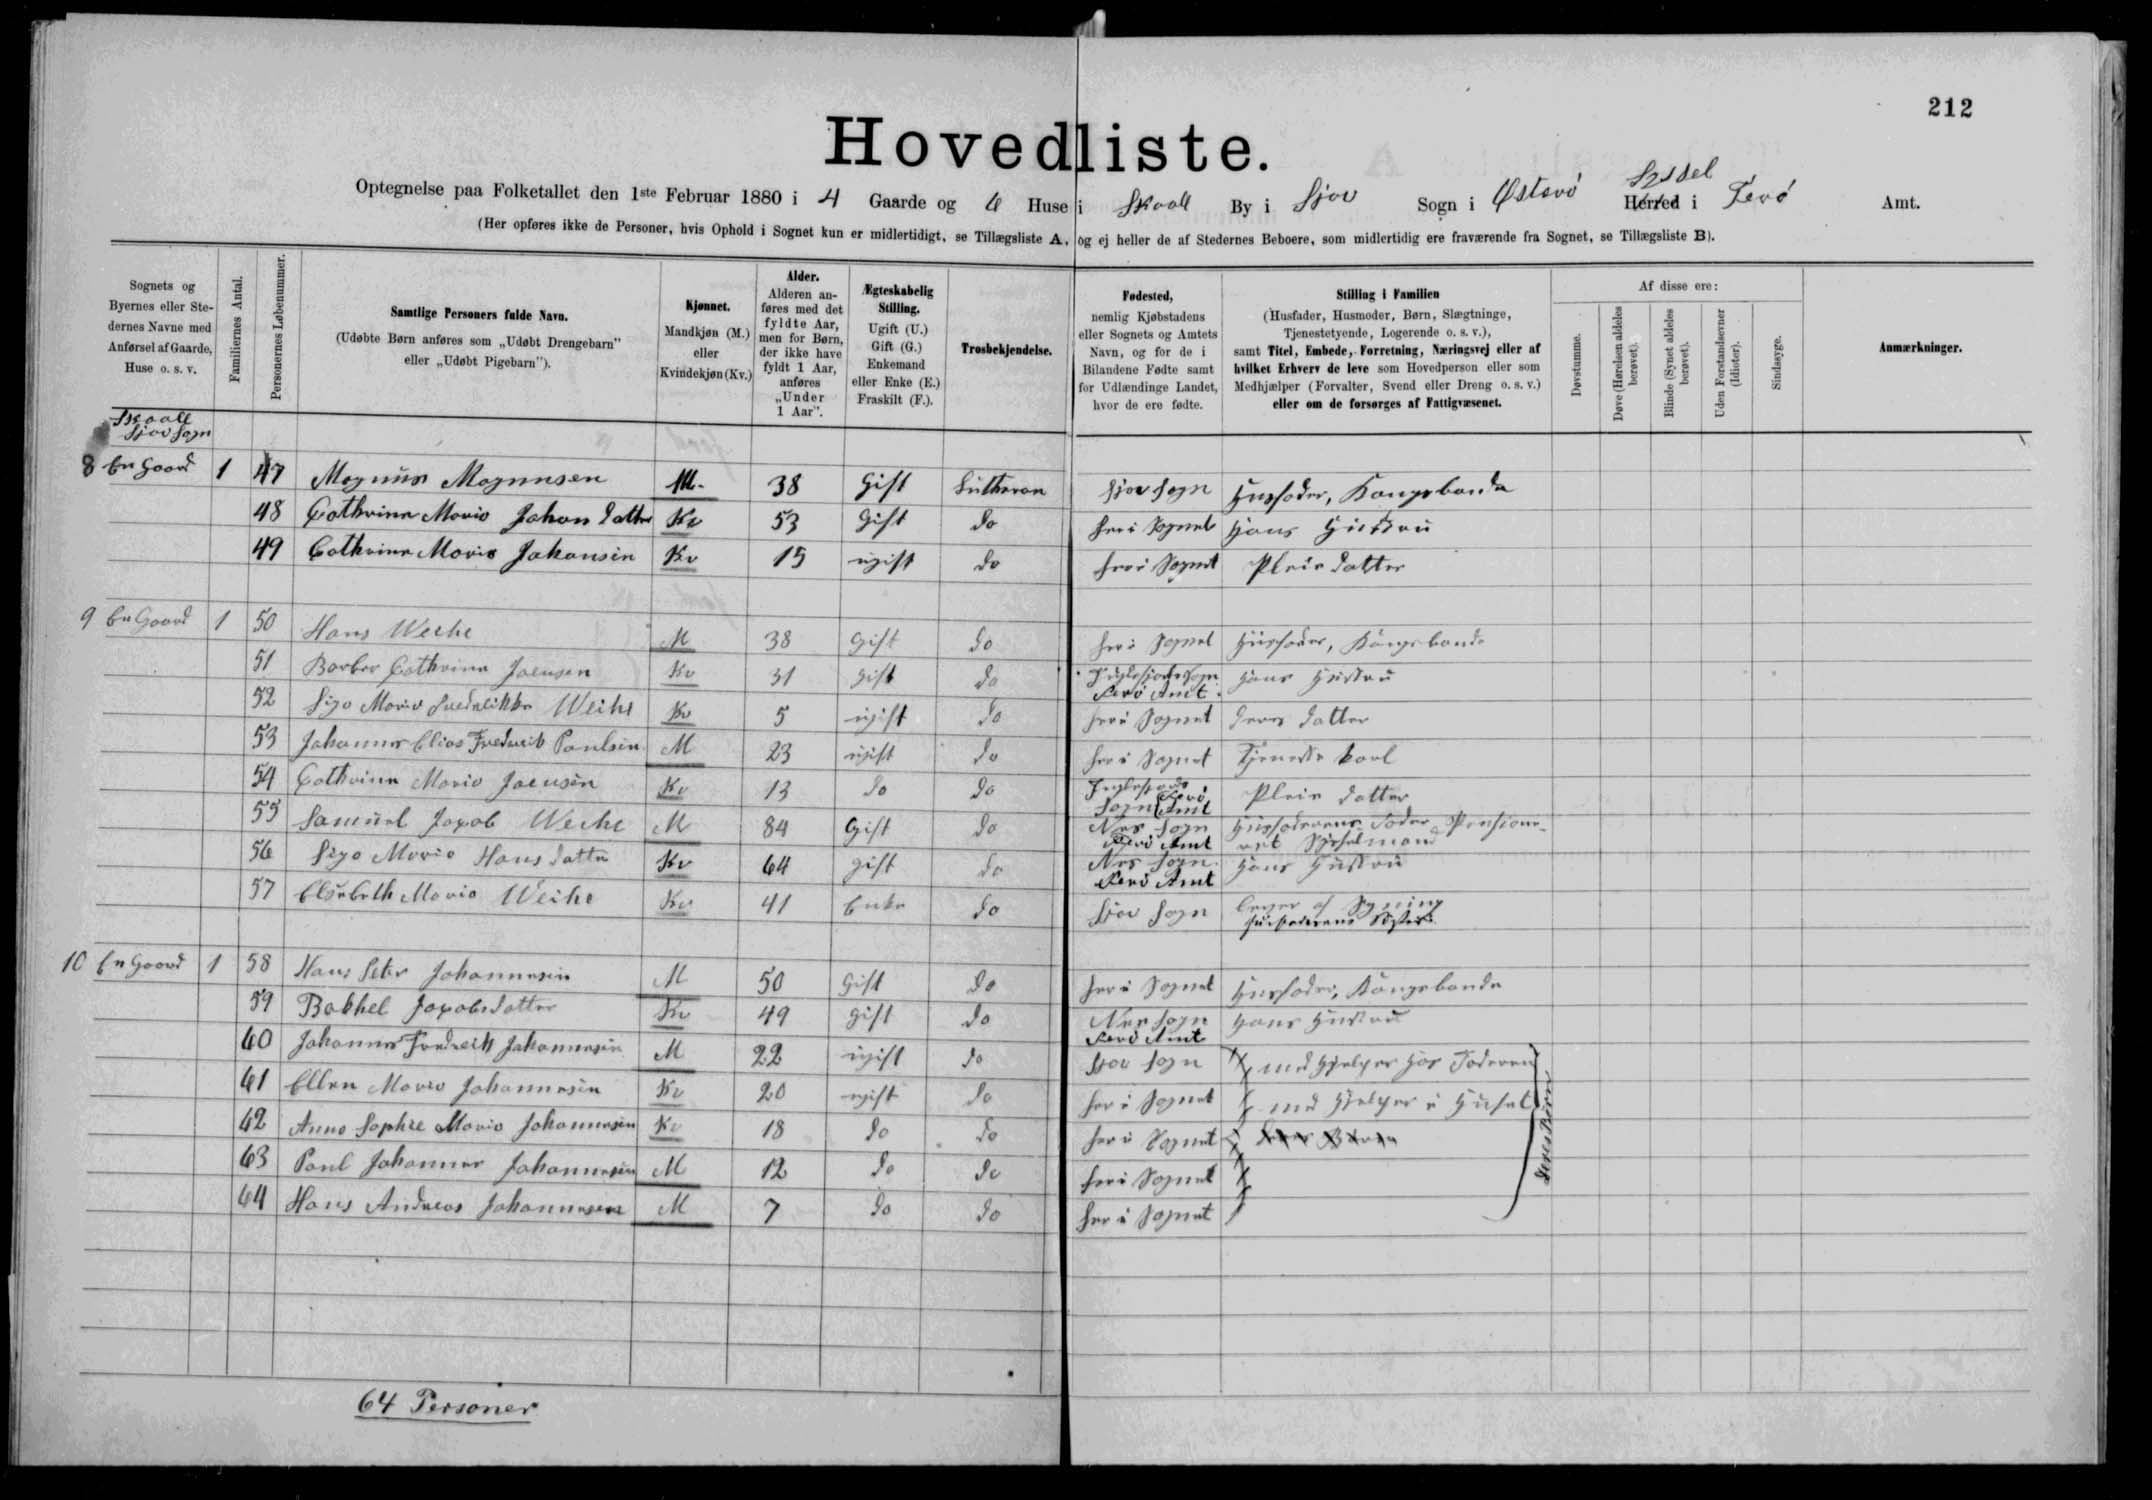 212
Hovedliste.
Optegnelse paa Folketallet den 1ste Februar 1880 i 4 Gaarde og 6 Huse i Skaale By i Sjov Sogn i Østerø Syssel Herred i Færø Amt.
(Her opføres ikke de Personer, hvis Ophold i Sognet kun er midlertidigt, se Tillægsliste A, og ej heller de af Stedernes Beboere, som midlertidig ere fraværende fra Sognet, se Tillægsliste B).
Sognets og Byernes eller Stedernes Navne med Anførsel af Gaarde, Huse o. s. v.
Familiernes Antal.
Personernes Løbenummer.
Samtlige Personers fulde Navn.
(Udøbte Børn anføres som „Udøbt Drengebarn" eller „Udøbt Pigebarn").
Kjønnet.
Mandkjøn (M.) eller Kvindekjøn (Kv.)
Alder.
Alderen anføres med det fyldte Aar, men for Børn, der ikke have fyldt 1 Aar, anføres „Under 1 Aar".
Ægteskabelig Stilling.
Ugift (U.) Gift (G.) Enkemand eller Enke (E.) Fraskilt (F.).
Trosbekjendelse.
Fødested,
nemlig Kjøbstadens eller Sognets og Amtets Navn, og for de i Bilandene Fødte samt for Udlændinge Landet, hvor de ere fødte.
Stilling i Familien
(Husfader, Husmoder, Børn, Slægtninge, Tjenestetyende, Logerende o. s. v.),
samt Titel, Embede, Forretning, Næringsvej eller af hvilket Erhverv de leve som Hovedperson eller som Medhjælper (Forvalter, Svend eller Dreng o. s. v.) eller om de forsørges af Fattigvæsenet.
Af disse ere:
Døvstumme.
Døve (Hørelsen aldeles berøvet).
Blinde (Synet aldeles berøvet).
Uden Forstandsevner (Idioter).
Sindssyge.
Anmærkninger.
Skaale
Sjov Sogn
8 En Gaard 1 47 Magnus Magnusen M. 38 Gift Lutheran Sjov Sogn Husfader, Kongsbonde
48 Cathrine Marie Johansdatter Kv 53 Gift do her i Sognet Hans Hustru
49 Cathrine Marie Johansen Kv 15 ugift do her i Sognet Pleie datter
9 En Gaard 1 50 Hans Weihe M 38 Gift do her i Sognet Husfader, Kongsbonde
51 Barbr Cathrine Joensen Kv 31 Gift do Fuglefjords Sogn Færø Amt. Hans Hustru
52 Sigo Marie Fredrikke Weihe Kv 5 ugift do her i Sognet deres datter
53 Johannes Elias Frederik Poulsen M 23 ugift do her i Sognet Tjeneste karl
54 Cathrine Marie Joensen Kv 13 do do Fuglefjords Sogn Færø Amt Pleie datter
55 Samuel Jacob Weihe M 84 Gift do Nes Sogn Færø Amt Husfaderens Fader Pensioneret Sysselmand
56 Sigo Marie Hansdatter Kv 64 gift do Nes Sogn Færø Amt Hans Hustru
57 Elsebeth Marie Weihe Kv 41 Enke do Sjov Sogn lever af Syning husfaderens Søster
10 En Gaard 1 58 Hans Peter Johannesen M 50 Gift do her i Sognet Husfader, Kongsbonde
59 Rakhel Jacobsdatter Kv 49 gift do Nes Sogn Færø Amt Hans Hustru
60 Johannes Fredrik Johannesen M 22 ugift do Sjov Sogn med Hjelper hos Faderen
61 Ellen Marie Johannesen Kv 20 ugift do her i Sognet med Hjelper i Huset
62 Anne Sophie Marie Johannesen Kv 18 do do her i Sognet deres Børn
63 Poul Johannes Johannesen M 12 do do her i Sognet
64 Hans Andreas Johannesen M 7 do do her i Sognet
deres Børn
64 Personer